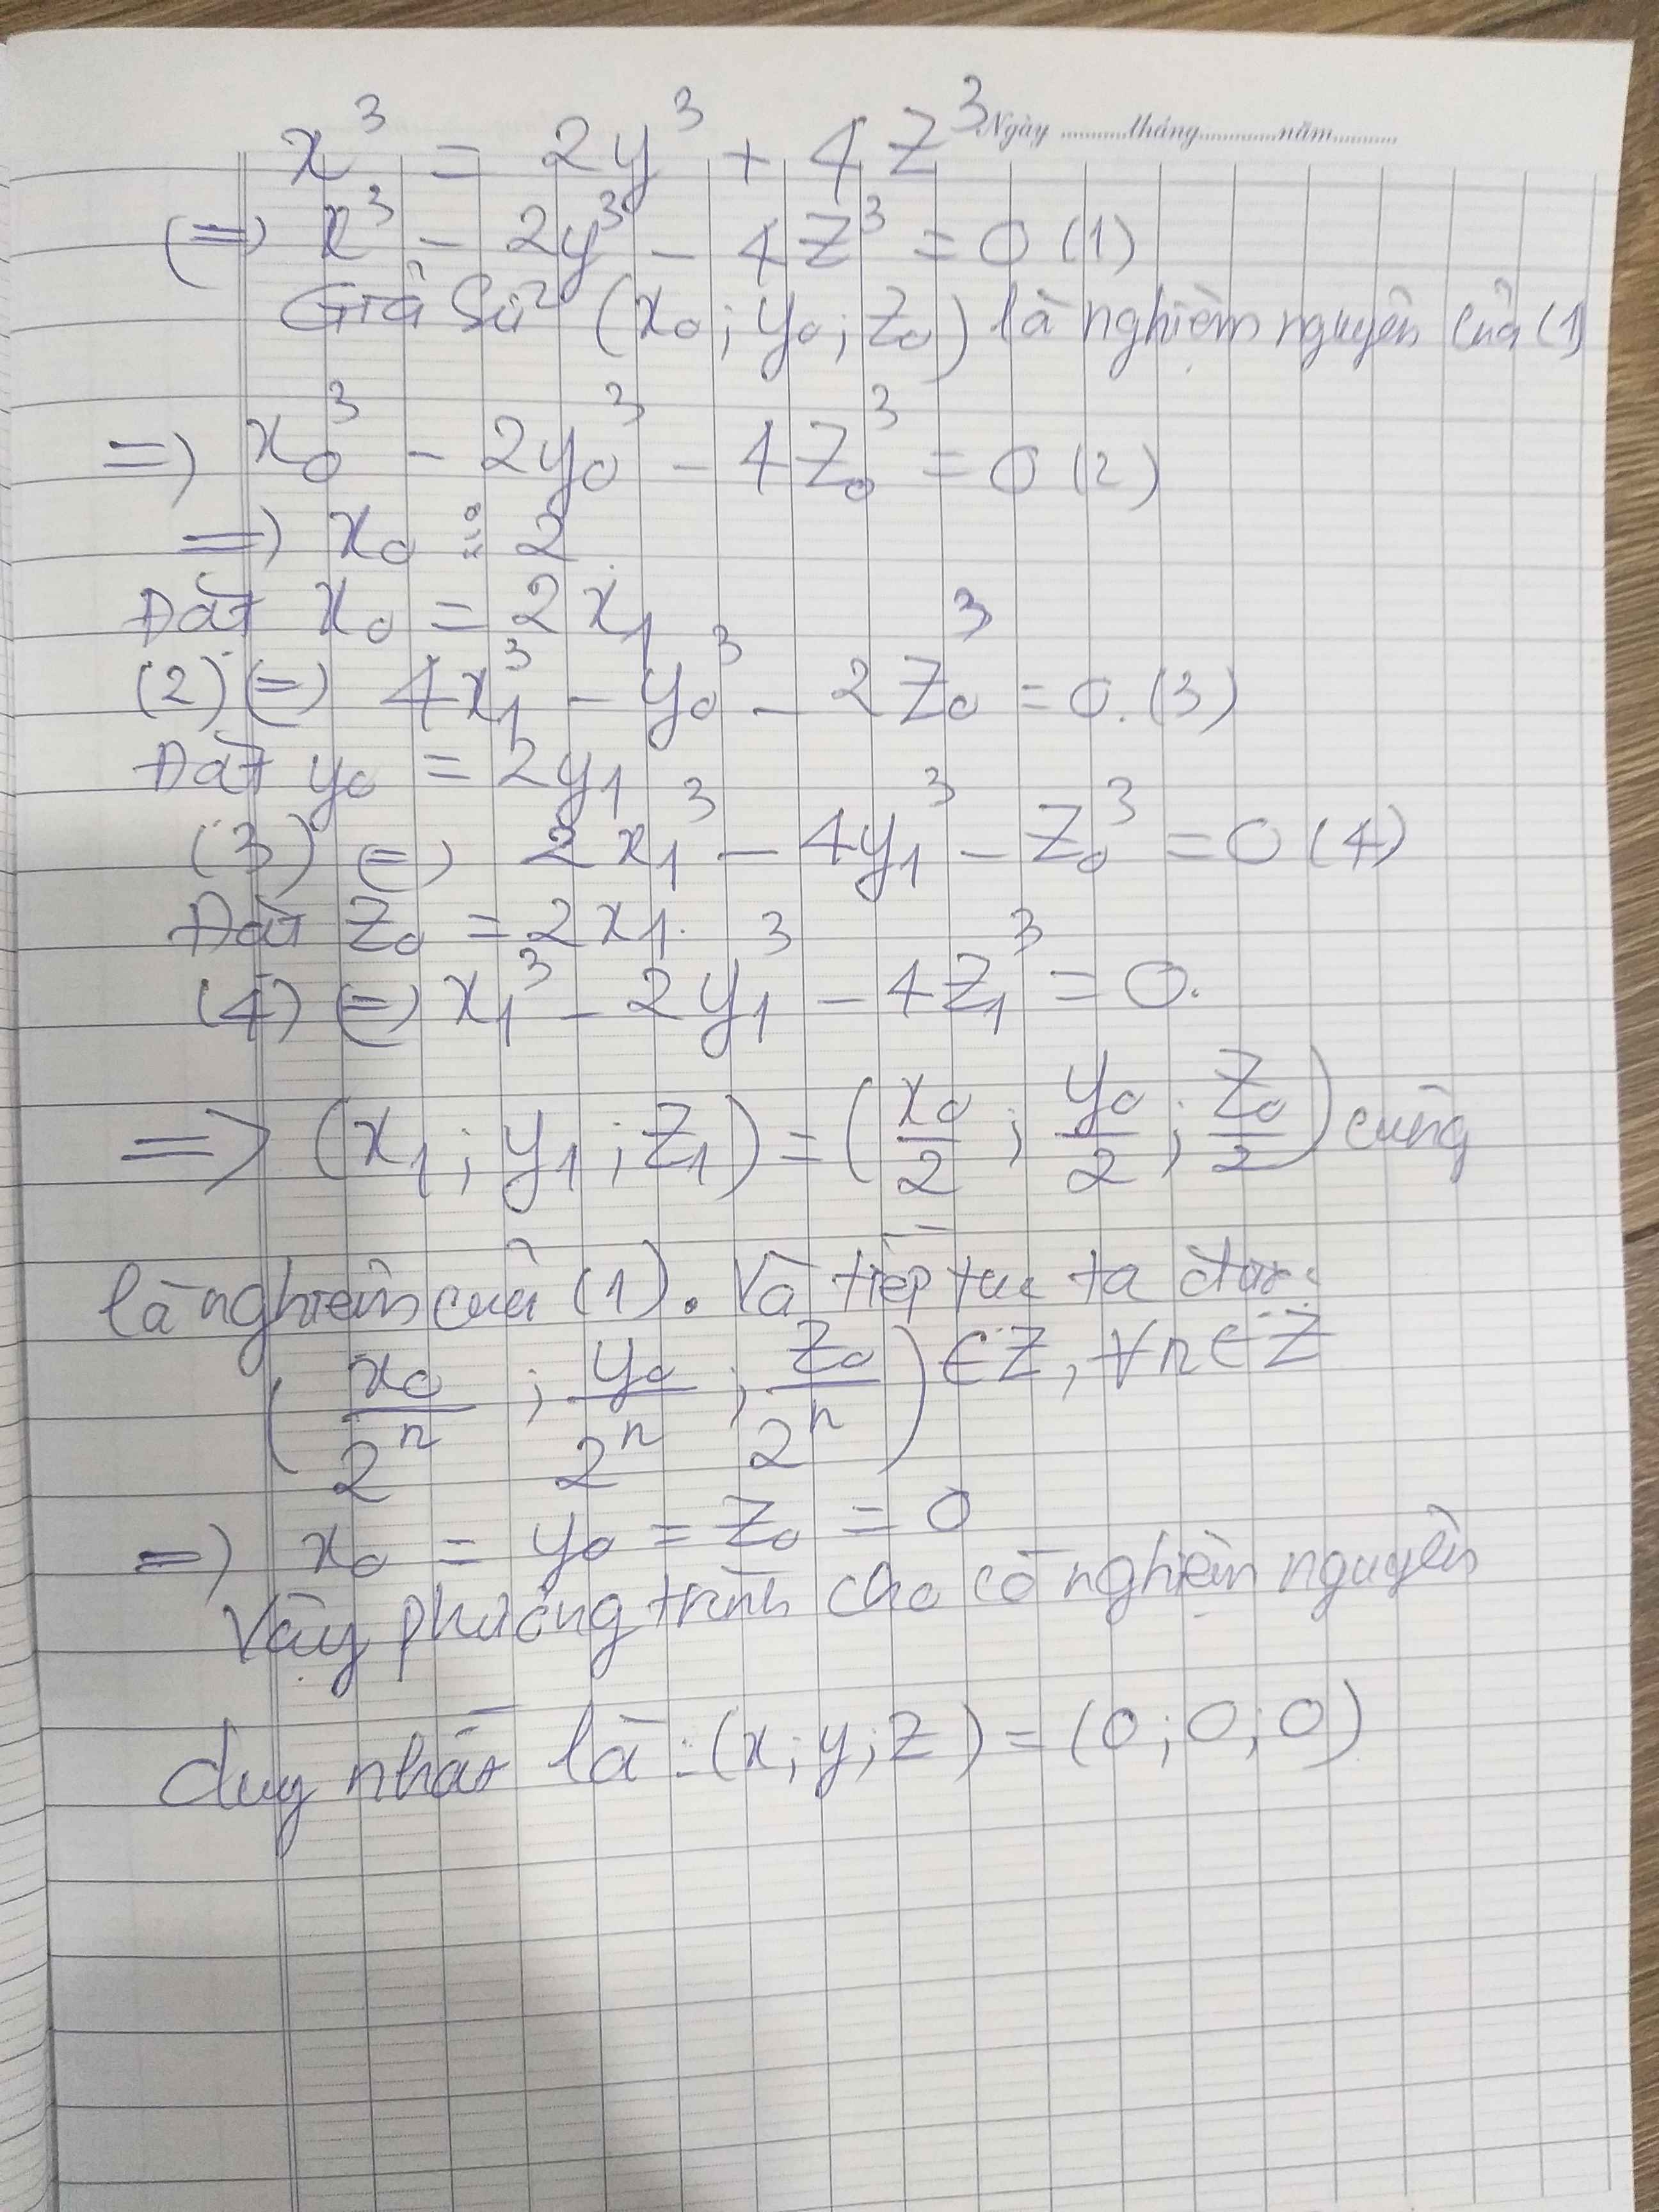 Ngày ........... tháng ........... năm ...........
x³ = 2y³ + 4z³
(=) x³ - 2y³ - 4z³ = 0 (1)
Giả sử (x₀; y₀; z₀) là nghiệm nguyên của (1)
=) x₀³ - 2y₀³ - 4z₀³ = 0 (2)
=) x₀ ⋮ 2
Đặt x₀ = 2x₁
(2) (=) 4x₁³ - y₀³ - 2z₀³ = 0. (3)
Đặt y₀ = 2y₁
(3) (=) 2x₁³ - 4y₁³ - z₀³ = 0 (4)
Đặt z₀ = 2x₁.
(4) (=) x₁³ - 2y₁³ - 4z₁³ = 0.
=> (x₁; y₁; z₁) = (x₀/2; y₀/2; z₀/2) cũng
là nghiệm của (1). Và tiếp tục ta được
(x₀/2ⁿ; y₀/2ⁿ; z₀/2ⁿ) ∈ Z, ∀n ∈ Z
=) x₀ = y₀ = z₀ = 0
Vậy phương trình cho có nghiệm nguyên
duy nhất là: (x; y; z) = (0; 0; 0)